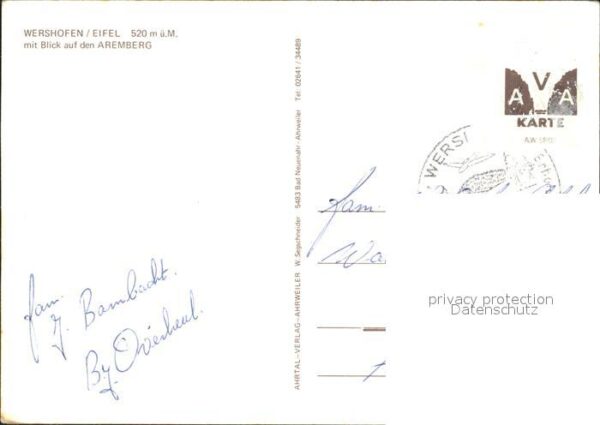 WERSHOFEN / EIFEL 520 m ü.M.
mit Blick auf den AREMBERG
Fam.
J. Bambacht.
By Overheul.
AHRTAL-VERLAG-AHRWEILER W. Segschneider 5483 Bad Neuenahr-Ahrweiler Tel: 02641 / 34489
V
A A
KARTE
WERS
Fam.
Wa
privacy protection
Datenschutz